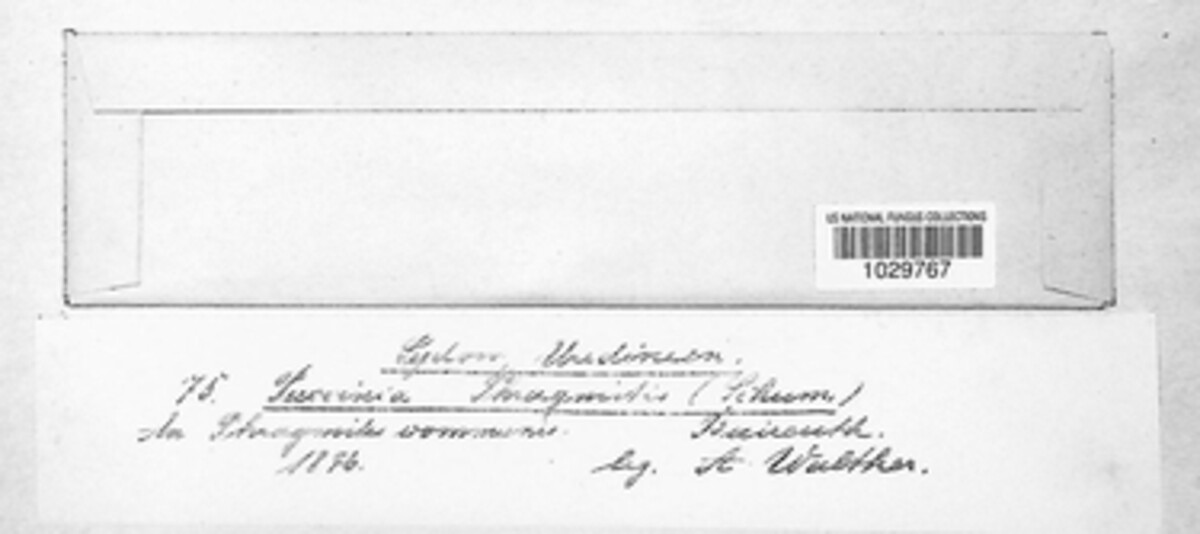 US NATIONAL FUNGUS COLLECTIONS
1029767
Sydow, Uredineen.
75. Puccinia Phragmitis (Schum)
An Phragmites communis. Baireuth.
1876. leg. A Walther.